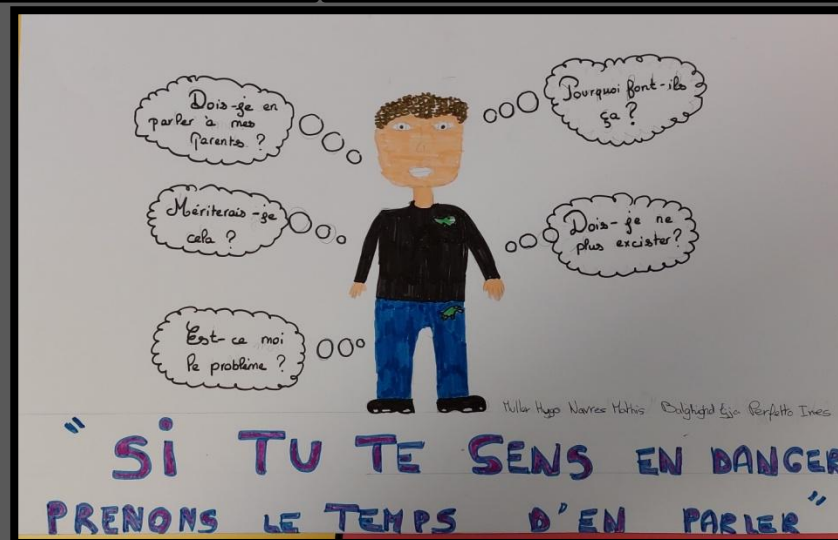 Dois-je en
parler à mes
Parents ?
Pourquoi font-ils
ça ?
Mériterais-je
cela ?
Dois-je ne
plus excister ?
Est-ce moi
le problème ?
Hugo Navres Mathis Perfetto Ines
"SI TU TE SENS EN DANGER
PRENONS LE TEMPS D'EN PARLER"